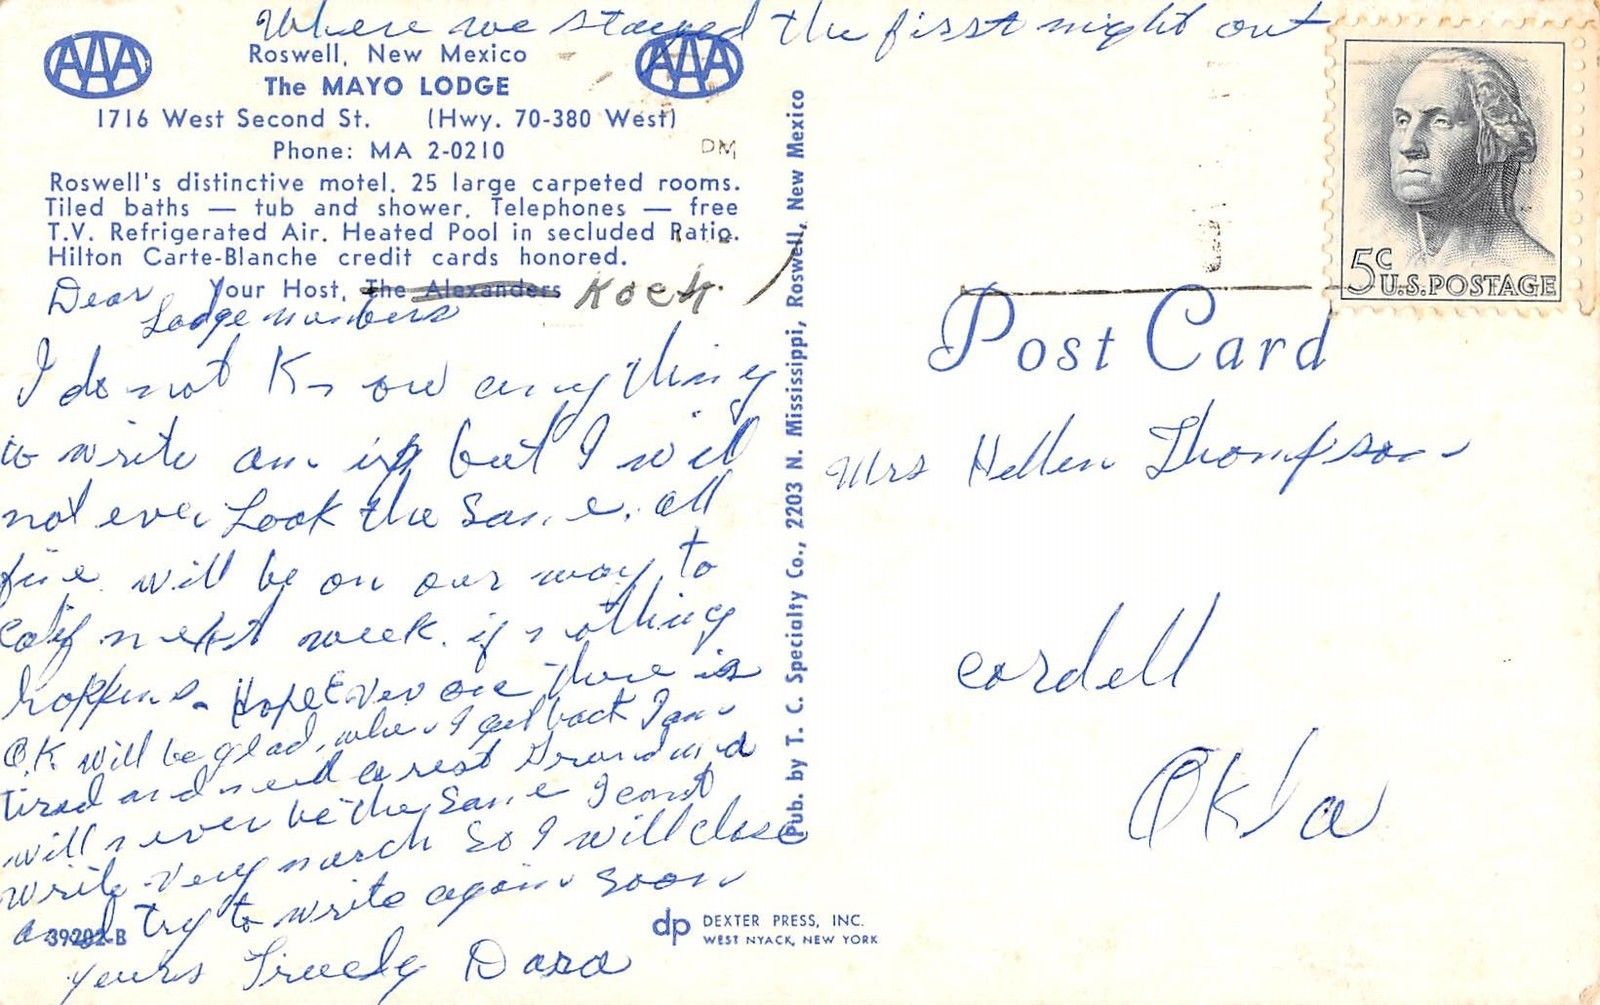 Where we stayed the first night out
AAA
AAA
Roswell, New Mexico
The MAYO LODGE
1716 West Second St. (Hwy. 70-380 West)
Phone: MA 2-0210
DM
Roswell's distinctive motel. 25 large carpeted rooms.
Tiled baths — tub and shower. Telephones — free
T.V. Refrigerated Air. Heated Pool in secluded Patio.
Hilton Carte-Blanche credit cards honored.
Your Host, The Alexanders Kock
Dear
Lodge members
I do not Know any thing
to write am but I will
not ever Look the Same. all
fine will be on our way to
Calif next week. if nothing
happens. Hope Ever one there is
O.K. will be glad when I get back I am
tired and need a rest Grand
will never be the Same I cant
write very much So I will close
and try to write again soon
yours Truely Dora
39282-B
Pub. by T. C. Specialty Co., 2203 N. Mississippi, Roswell, New Mexico
dp DEXTER PRESS, INC.
WEST NYACK, NEW YORK
5c U.S. POSTAGE
Post Card
Mrs Hellen Thompson
Cordell
Okla